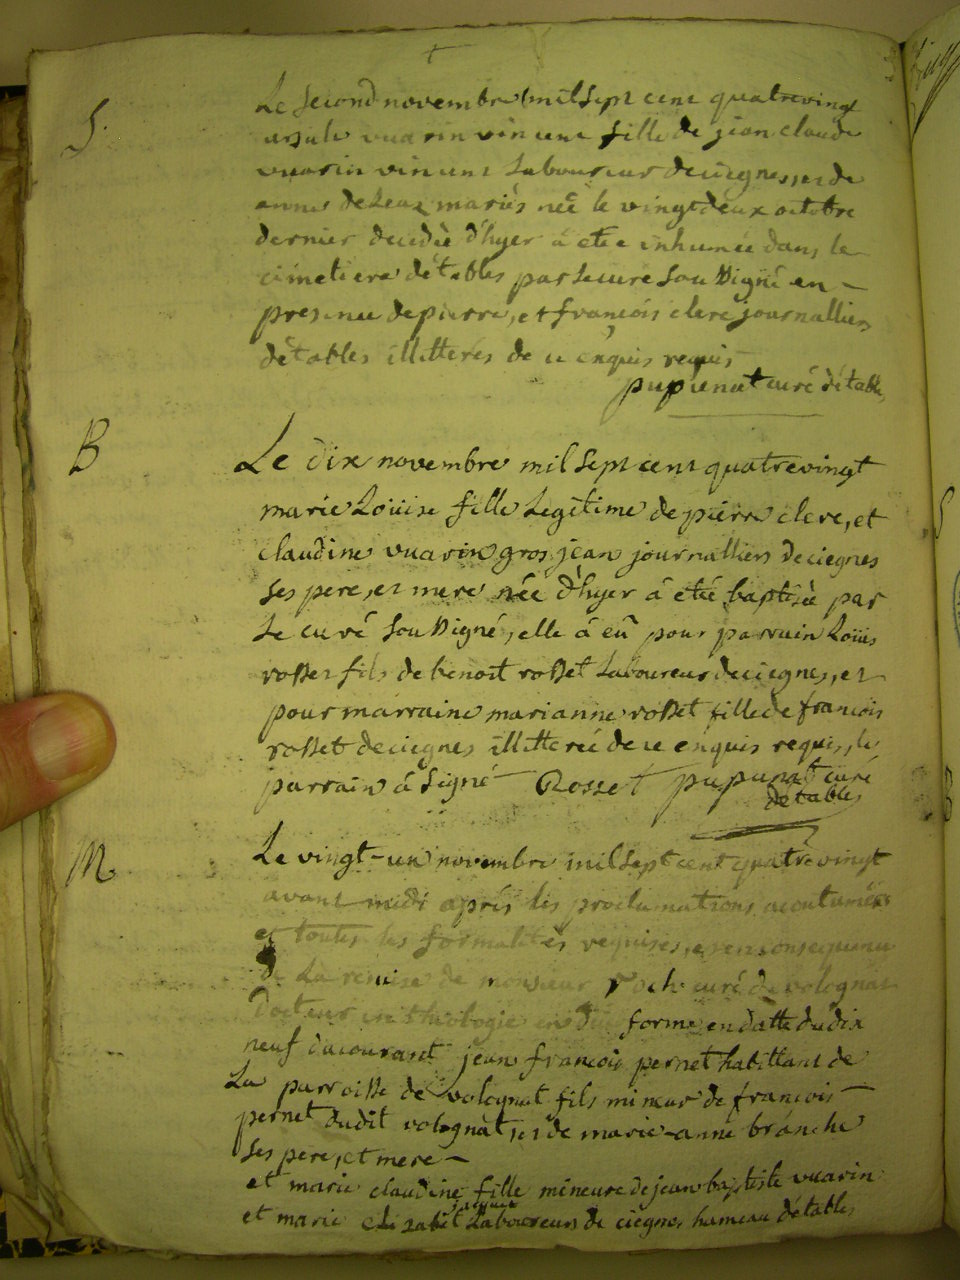 S.
Le second novembre mil sept cent quatrevingt
ursule vuarin vincent fille de jean claude
vuarin vincent Laboureur deciegnes, et de
anne deleaz mariés neê le vingtdéux octobre
dernier decedeè d'hyer â etee inhumée dans le
cimetiere détables par le curé sou signé en
presence depierre, et françois clerc journalliers
détables illitterés de ce enquis requis
pupunat curé détables
B
Le dix novembre mil sept cent quatrevingt
marie Loüise fille Legitime de pierre clerc, et
claudine vuarin gros jean journalliers deciegnes
ses pere, et mere néé d'hyer â eteé baptisèe par
Le curé sou signé, elle â eû pour parrain Loüis
rosset fils de benoit rosset Laboureur deciegnes, et
pour marraine marianne rosset fille de francois
rosset deciegnes illitterée de ce énquis requis, le
parrain â signé Rosset pupunat curé
détables
M
Le vingt-un novembre mil sept cent quatrevingt
avant midi aprés les proclamations acoutumées
et toutes les formalités requises, et en consequence
de La remise de monsieur roch curé de volognat
Docteur en théologie en düe forme en datte du dix
neuf du courant jean francois pernet habittant de
La parroisse de volognat fils mineur de francois
pernet dudit volognat, et de marie-anne branche
ses pere, et mere
et marie claudine fille mineure de jean baptiste vuarin
et marie elizabet Laboureurs de ciegnes hameau détables